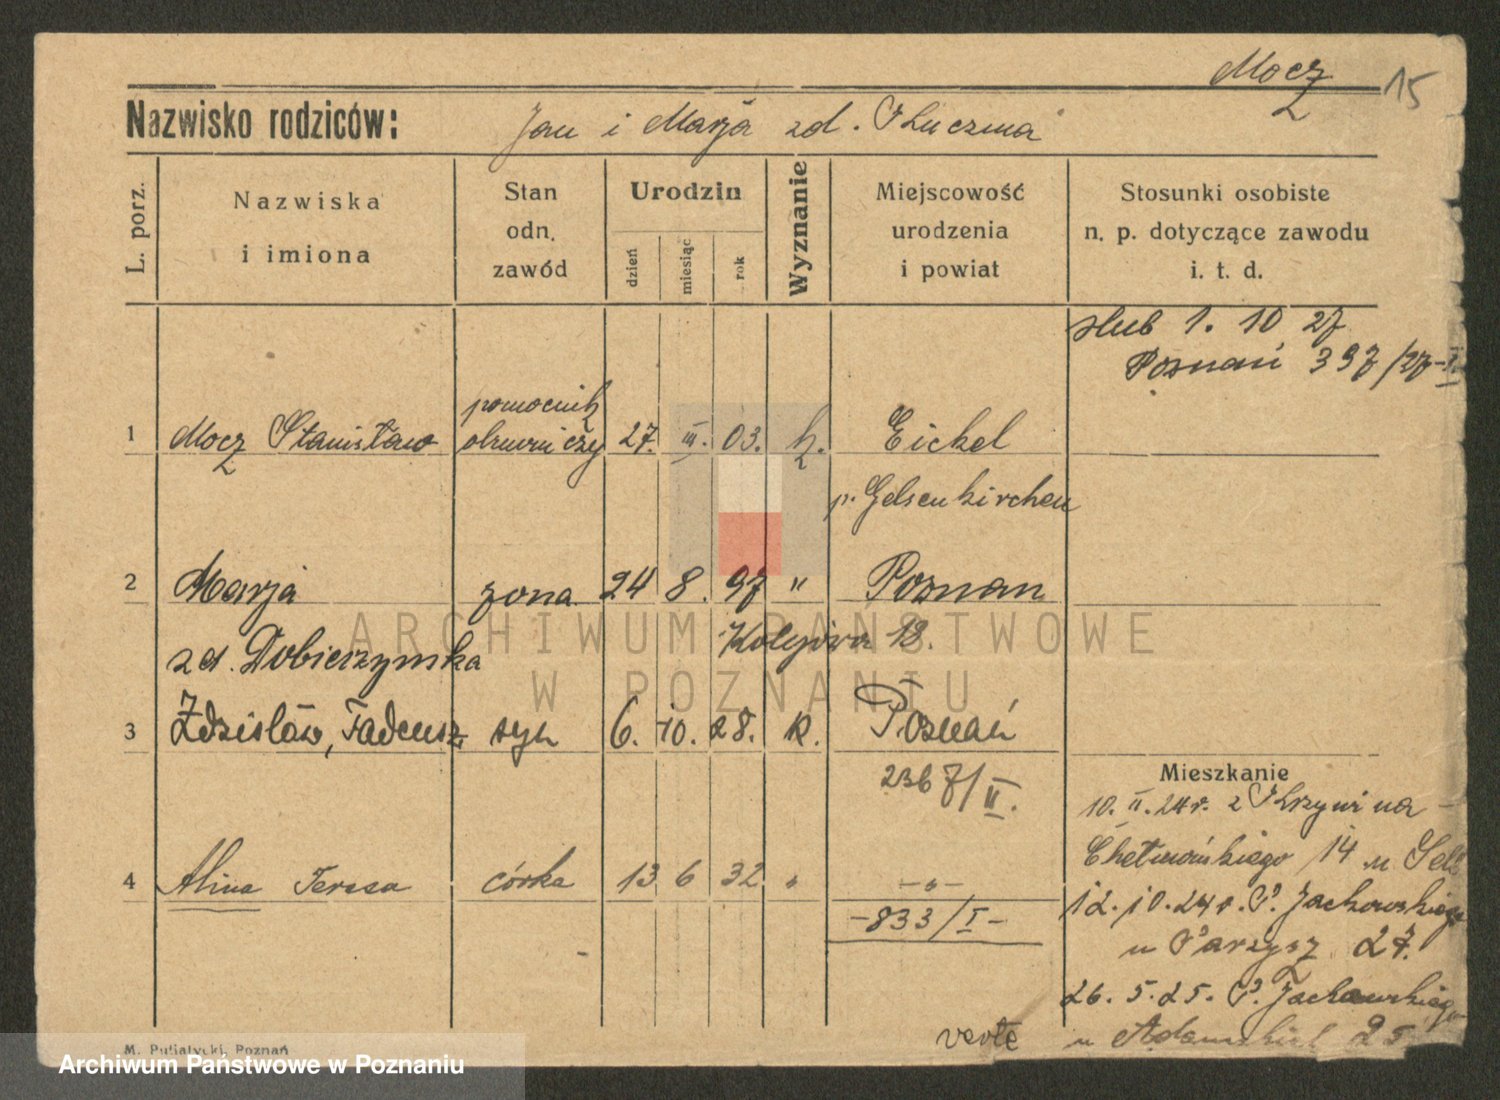 Mocz 15
Nazwisko rodziców: Jan i Marja zd.
L. porz.
Nazwiska
i imiona
Stan
odn.
zawód
Urodzin
dzień
miesiąc
rok
Wyznanie
Miejscowość
urodzenia
i powiat
Stosunki osobiste
n. p. dotyczące zawodu
i. t. d.
ślub 1. 10 27
Poznań 397/27-I
pomocnik
1 Mocz Stanisław 27. III. 03. k. Eickel
p. Gelsenkirchen
2 Marja żona 24 8. 97 " Poznan
zd. Dobierzyńska Kolejowa 18.
3 Zdzisław, Tadeusz, syn 6. 10. 28. k. Poznań
2367/II.
Mieszkanie
10. II. 24r. z na
Chełmońskiego 14 u
4 Alina Teresa córka 13 6 32 " -"-
-833/I-
12. 10. 24r. P. Jackowskiego
u Parzysz 27.
26. 5. 25. P. Jackowskiego
verte u 25
M. Putiatycki, Poznań
ARCHIWUM PAŃSTWOWE
W POZNANIU
Archiwum Państwowe w Poznaniu